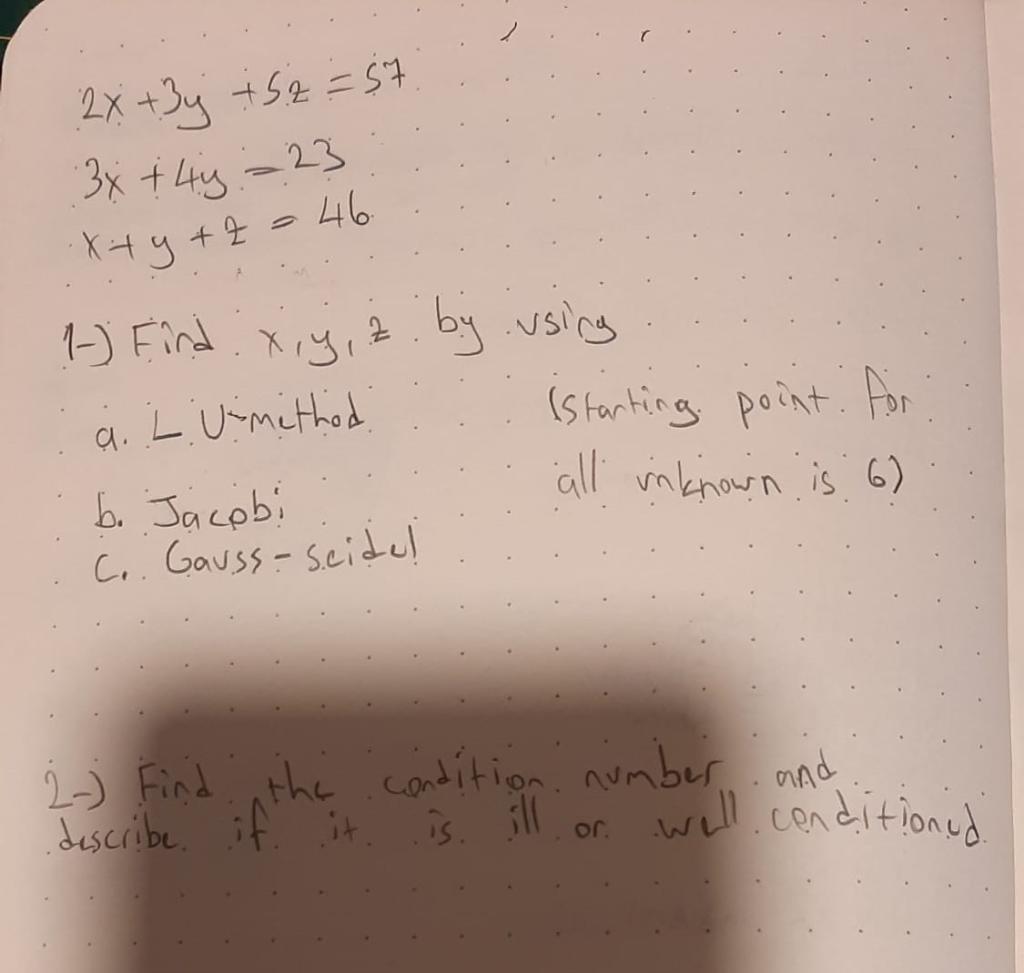 2x + 3y + 5z = 57
3x + 4y = 23
x + y + z = 46
1-) Find x, y, z by using
a. LU-method (starting point for
all unknown is 6)
b. Jacobi
c. Gauss-seidel
2-) Find the condition number and
describe if it is ill or well conditioned